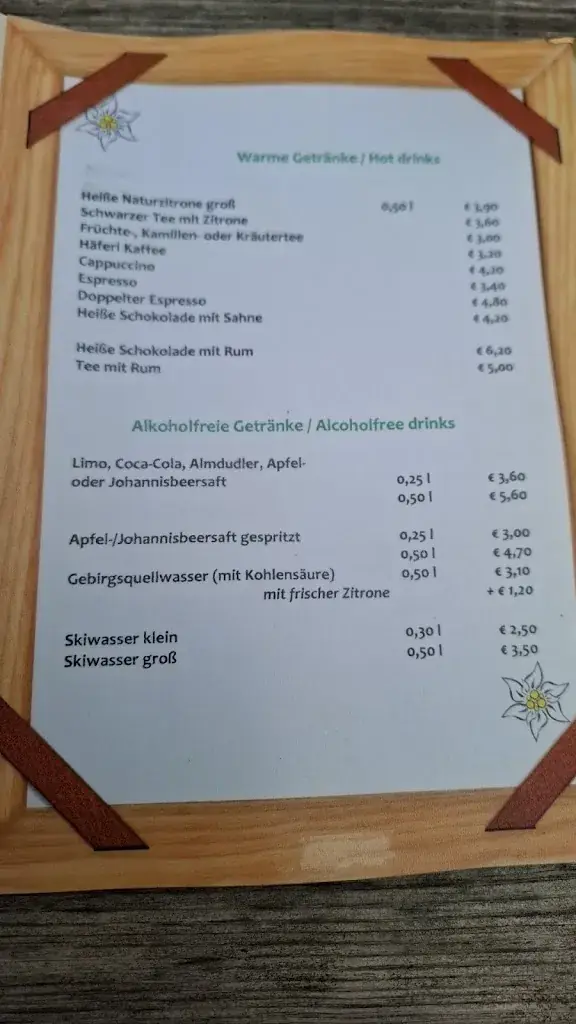 Warme Getränke / Hot drinks
Heiße Naturzitrone groß 0,50 l € 3,90
Schwarzer Tee mit Zitrone € 3,60
Früchte-, Kamillen- oder Kräutertee € 3,00
Häferl Kaffee € 3,20
Cappuccino € 4,20
Espresso € 3,40
Doppelter Espresso € 4,80
Heiße Schokolade mit Sahne € 4,20
Heiße Schokolade mit Rum € 6,20
Tee mit Rum € 5,00
Alkoholfreie Getränke / Alcoholfree drinks
Limo, Coca-Cola, Almdudler, Apfel-
oder Johannisbeersaft 0,25 l € 3,60
0,50 l € 5,60
Apfel-/Johannisbeersaft gespritzt 0,25 l € 3,00
0,50 l € 4,70
Gebirgsquellwasser (mit Kohlensäure) 0,50 l € 3,10
mit frischer Zitrone + € 1,20
Skiwasser klein 0,30 l € 2,50
Skiwasser groß 0,50 l € 3,50